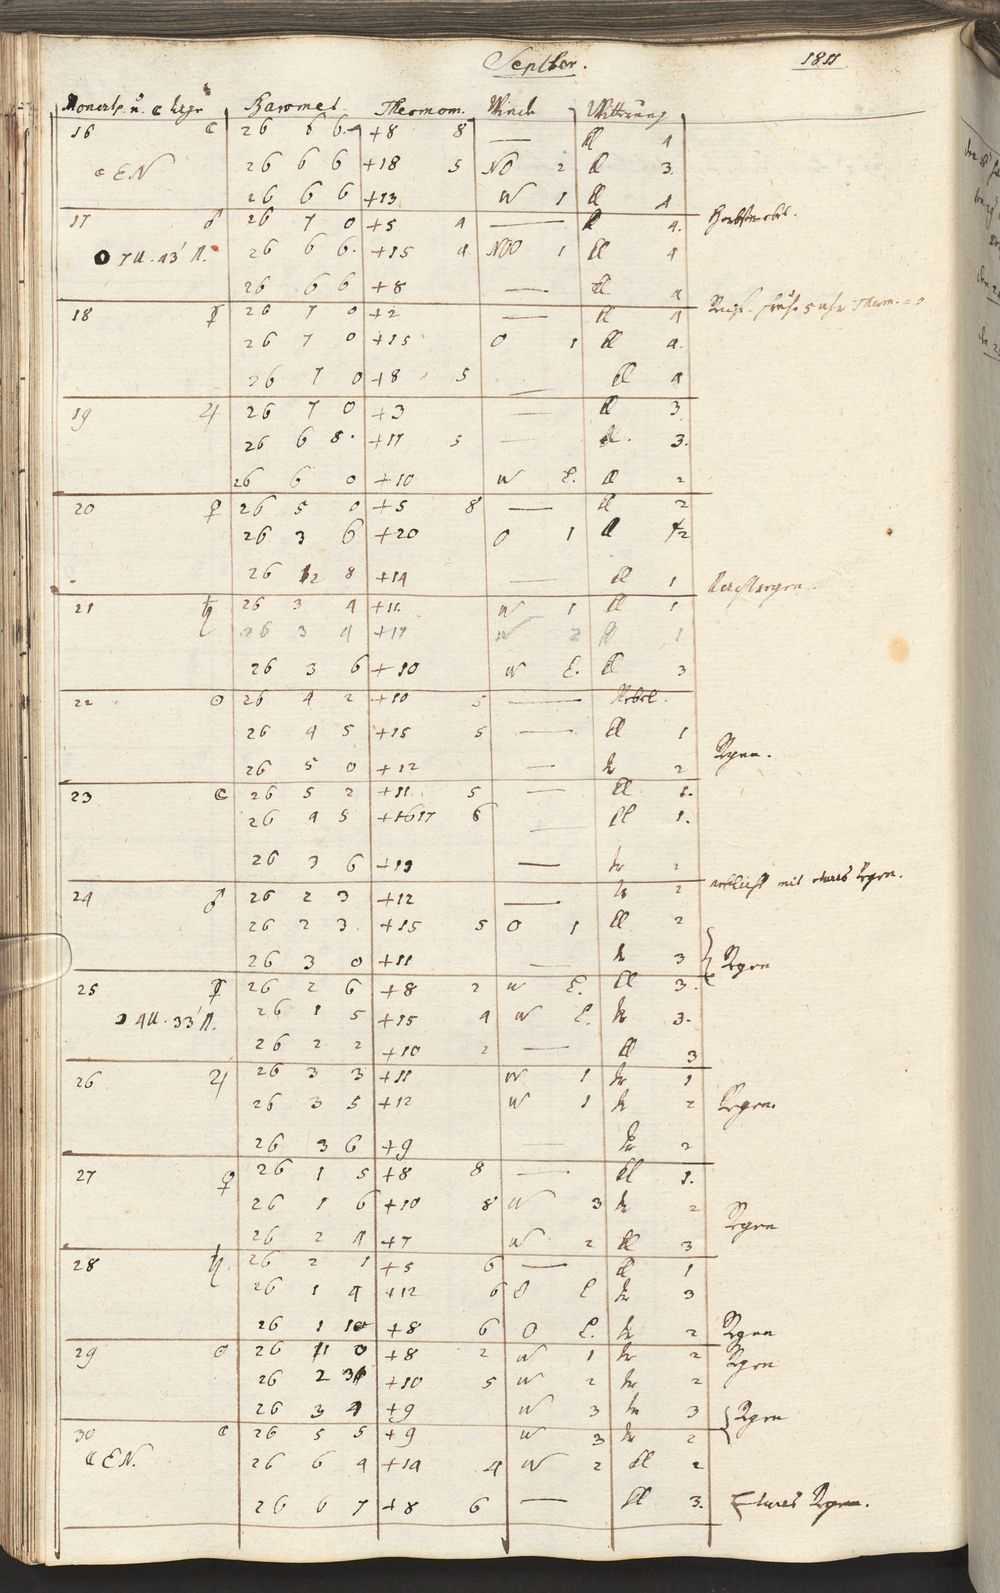 Septber. 1811
Monatsp. u. ☾ Baromet. Thermom. Winde Witterung
16 ☾ 26 6 6 +8 8 — kl 4
☾ EN 26 6 6 +18 5 NO 2 kl 3.
26 6 6 +13 W 1 kl 4
17 ♂ 26 7 0 +5 4 — kl 4.
7 U. 43' 26 6 6. +15 4 NOO 1 kl 4
26 6 6 +8 — kl 4
18 ☿ 26 7 0 +2 — kl 4 Reif. früh 5 uhr Therm. = 0
26 7 0 +15 O 1 kl 4.
26 7 0 +8 5 — kl 4
19 ♃ 26 7 0 +3 — kl 3
26 6 8. +17 5 — kl. 3.
26 6 0 +10 W E. kl 2
20 ♀ 26 5 0 +5 8 — kl 2
26 3 6 +20 O 1 kl 1/2
26 2 8 +14 — kl 1
21 ♄ 26 3 4 +11 W 1 kl 1
26 3 4 +17 W 2 kl 1
26 3 6 +10 W E. kl 3
22 ☉ 26 4 2 +10 5 — Nebel.
26 4 5 +15 5 — kl 1
26 5 0 +12 — tr 2 Regen.
23 ☾ 26 5 2 +11 5 — kl 1.
26 4 5 +17 6 — kl 1.
26 3 6 +13 — tr 2
24 ♂ 26 2 3 +12 — tr 2 mit etwas Regen.
26 2 3. +15 5 O 1 kl 2
26 3 0 +11 — tr 3 Regen
25 ☿ 26 2 6 +8 2 W E. kl 3.
4 U. 33' 26 1 5 +15 4 W E. tr 3.
26 2 2 +10 2 — kl 3
26 ♃ 26 3 3 +11 W 1 tr 1
26 3 5 +12 W 1 tr 2 Regen.
26 3 6 +9 — tr 2
27 ♀ 26 1 5 +8 8 — kl 1.
26 1 6 +10 8 W 3 tr 2 Regen
26 2 4 +7 W 2 kl 3
28 ♄ 26 2 1 +5 6 — kl 1
26 1 4 +12 6 O E tr 3
26 1 10 +8 6 O E. tr 2 Regen
29 ☉ 26 1 0 +8 2 W 1 tr 2 Regen
26 2 3 +10 5 W 2 tr 2
26 3 4 +9 W 3 tr 3 Regen
30 ☾ 26 5 5 +9 W 3 tr 2
☾ EN. 26 6 4 +14 4 W 2 kl 2
26 6 7 +8 6 — kl 3. Etwas Regen.